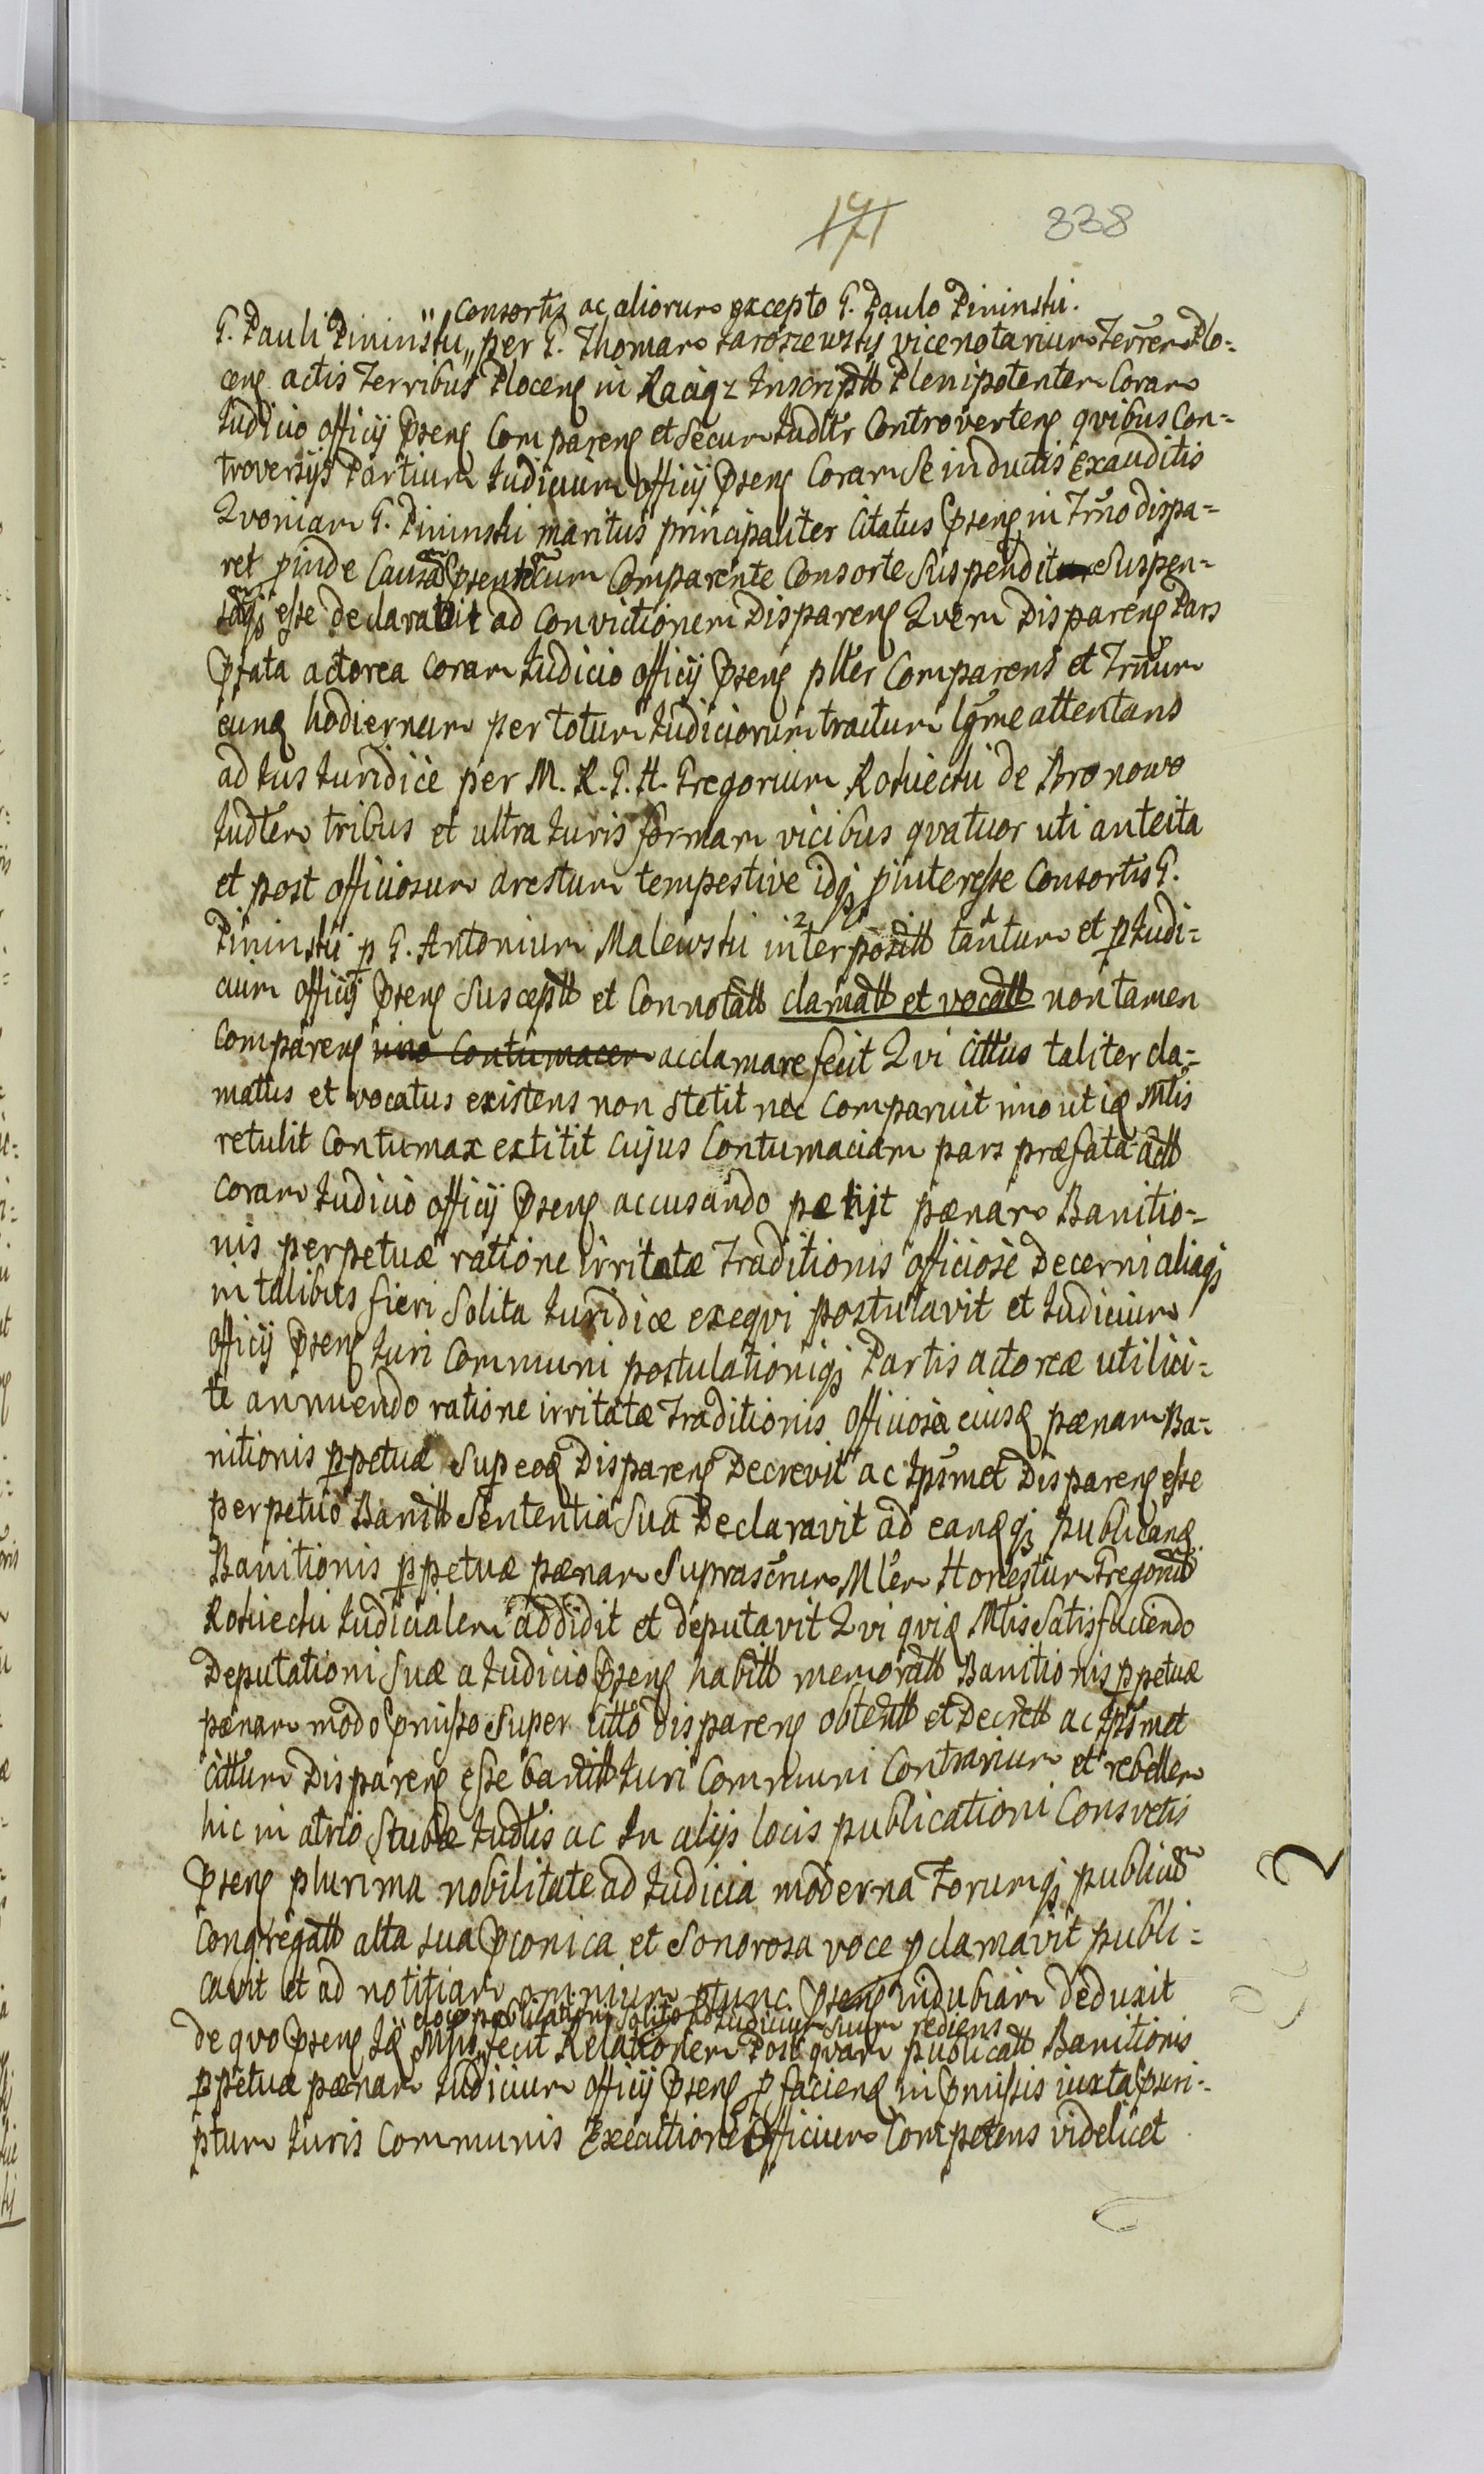 171 338
Consortis ac aliorum excepto G. Paulo Pininski.
G. Pauli Pininski „ per G. Thomam Jaroszewskij vicenotarium Terrēn Plo=
cens actis Terribus Plocens in Raciąz Inscriptt Plenipotentem Coram
Judicio officij Pñens Comparens et Secum Judtr Controvertens qvibus Con=
troversijs Partium Judicium officij Pñens Coram Se inductis Exauditis
Qvoniam G. Pininski maritus principaliter Citatus Pñens in Trño dispa=
ret pinde Causā Pñentē cum Comparente Consorte Suspendit Suspen=
sāq₃ esse declaravit ad Convictionem Disparens Qvem Disparens Pars
Pfata actorea coram Judicio officij Pñens pllēr Comparens et Trñum
eunꝗ hodiernum per totum Judiciorum tractum lgm̄e attentans
ad Jus Juridicè per M. R. G. H. Gregorium Rokiecki de Bronowo
Judtem tribus et ultra Juris formam vicibus qvatuor uti anteita
et post officiosum arestum tempestive idq₃ pinteresse Consortis G.
Pininski p G. Antonium Malewski interpositt tantum et p Judi=
cium officij Pñens Susceptt et Connotatt clamatt et vocatt non tamen
Comparens imo Contumacem acclamare fecit Qvi Cittus taliter cla=
mattus et vocatus existens non stetit nec Comparuit imo ut iꝗ Mtis
retulit Contumax extitit Cujus Contumaciam pars præfata actt
Coram Judicio officij Pñens accusando pætijt pænam Banitio=
nis perpetuæ ratione irritatæ Traditionis officiosè Decerni aliaq₃
in talibus fieri Solita Juridice exeqvi postulavit et Judicium
officij Pñens Juri Communi postulationiq₃ Partis actoreæ utilici=
te annuendo ratione irritatæ Traditionis officiosæ eiusꝗ pænam Ba=
nitionis ppetuæ Sup eoꝗ Disparens Decrevit ac Ipsmet Disparens esse
perpetuò Banitt Sententia Sua Declaravit ad eanꝗq₃ publicanꝗ
Banitionis ppetuæ pænam Suprascrum Mlem Honestum Gregoriū
Rokiecki Judicialem addidit et deputavit Qvi qviꝗ Mtis Satisfaciendo
Deputationi Suæ a Judicio Pñens habitt memoratt Banitionis ppetuæ
pænam modo Pmisso Super Citto disparens obtentt et Decrett ac Ipsmet
cittum Disparens esse banitt Juri Communi Contrarium et rebellem
hic in atrio Stubæ Judtis ac In alijs locis publicationi Consvetis
Pñens plurima nobilitate ad Judicia moderna Forumq₃ publicū
Congregatt alta sua Pconica et Sonorosa voce pclamavit publi=
cavit et ad notitiam omnium ptunc Pñens indubiam deduxit
eloq publicationi Solito ad Judicium Suum rediens
de qvo Pñens Iꝗ Mtis „ fecit Relationem Post qvam publicatt Banitionis
ppetuæ pænam Judicium officij Pñens p faciens in Pmissis iuxta Pscri=
ptum Juris Communis Executione Officium Competens videlicet